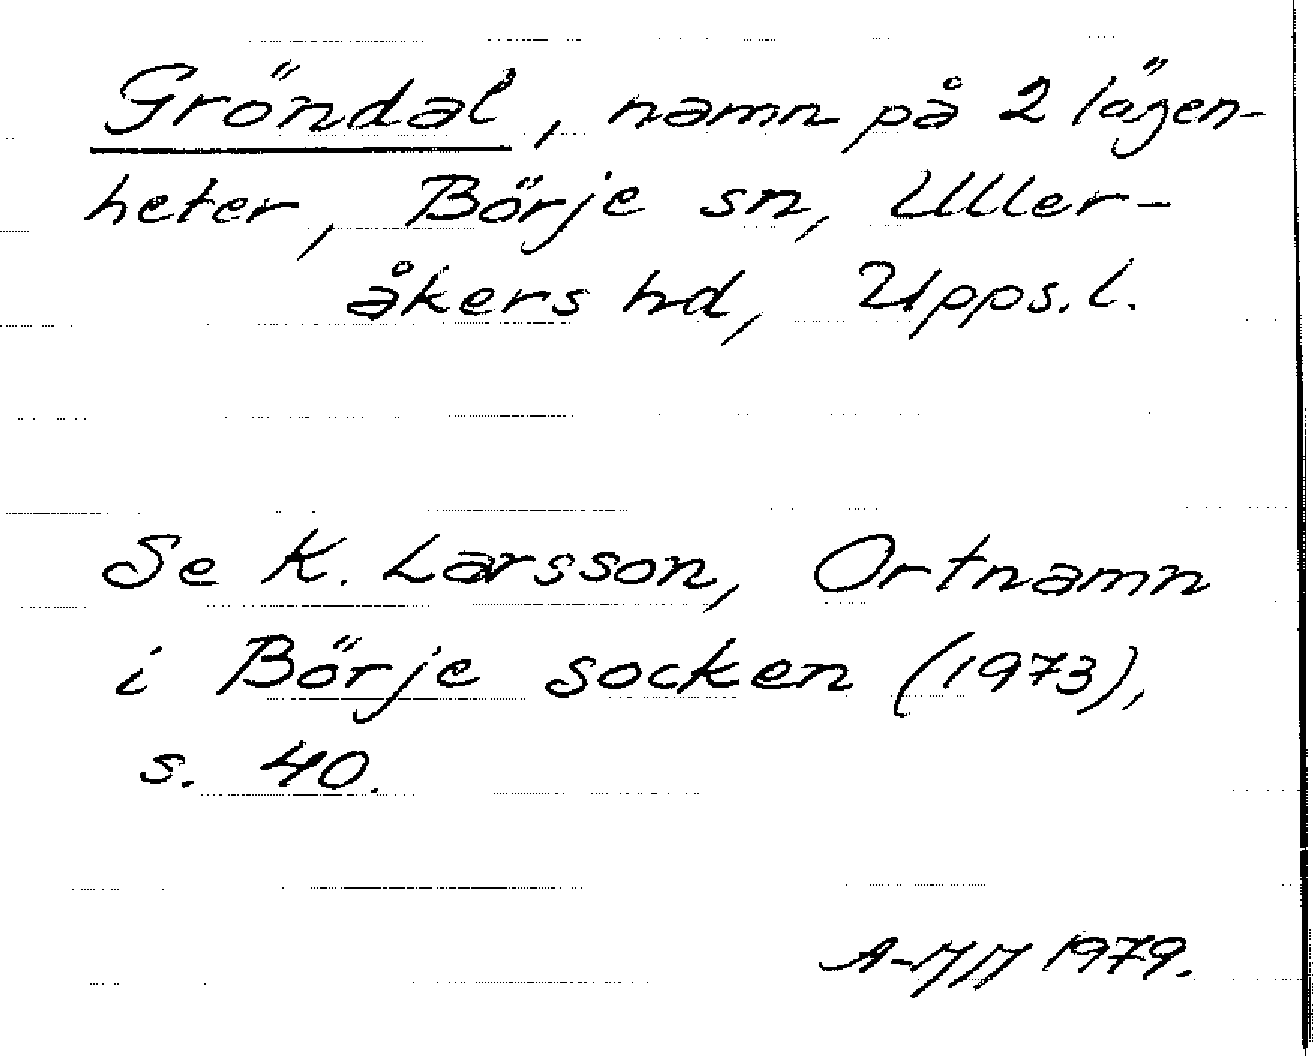 Gröndal, namn på 2 lägen-
heter, Börje sn, Uller-
åkers hd, Upps. l.
Se K. Larsson, Ortnamn
i Börje socken (1973),
s. 40.
1979.